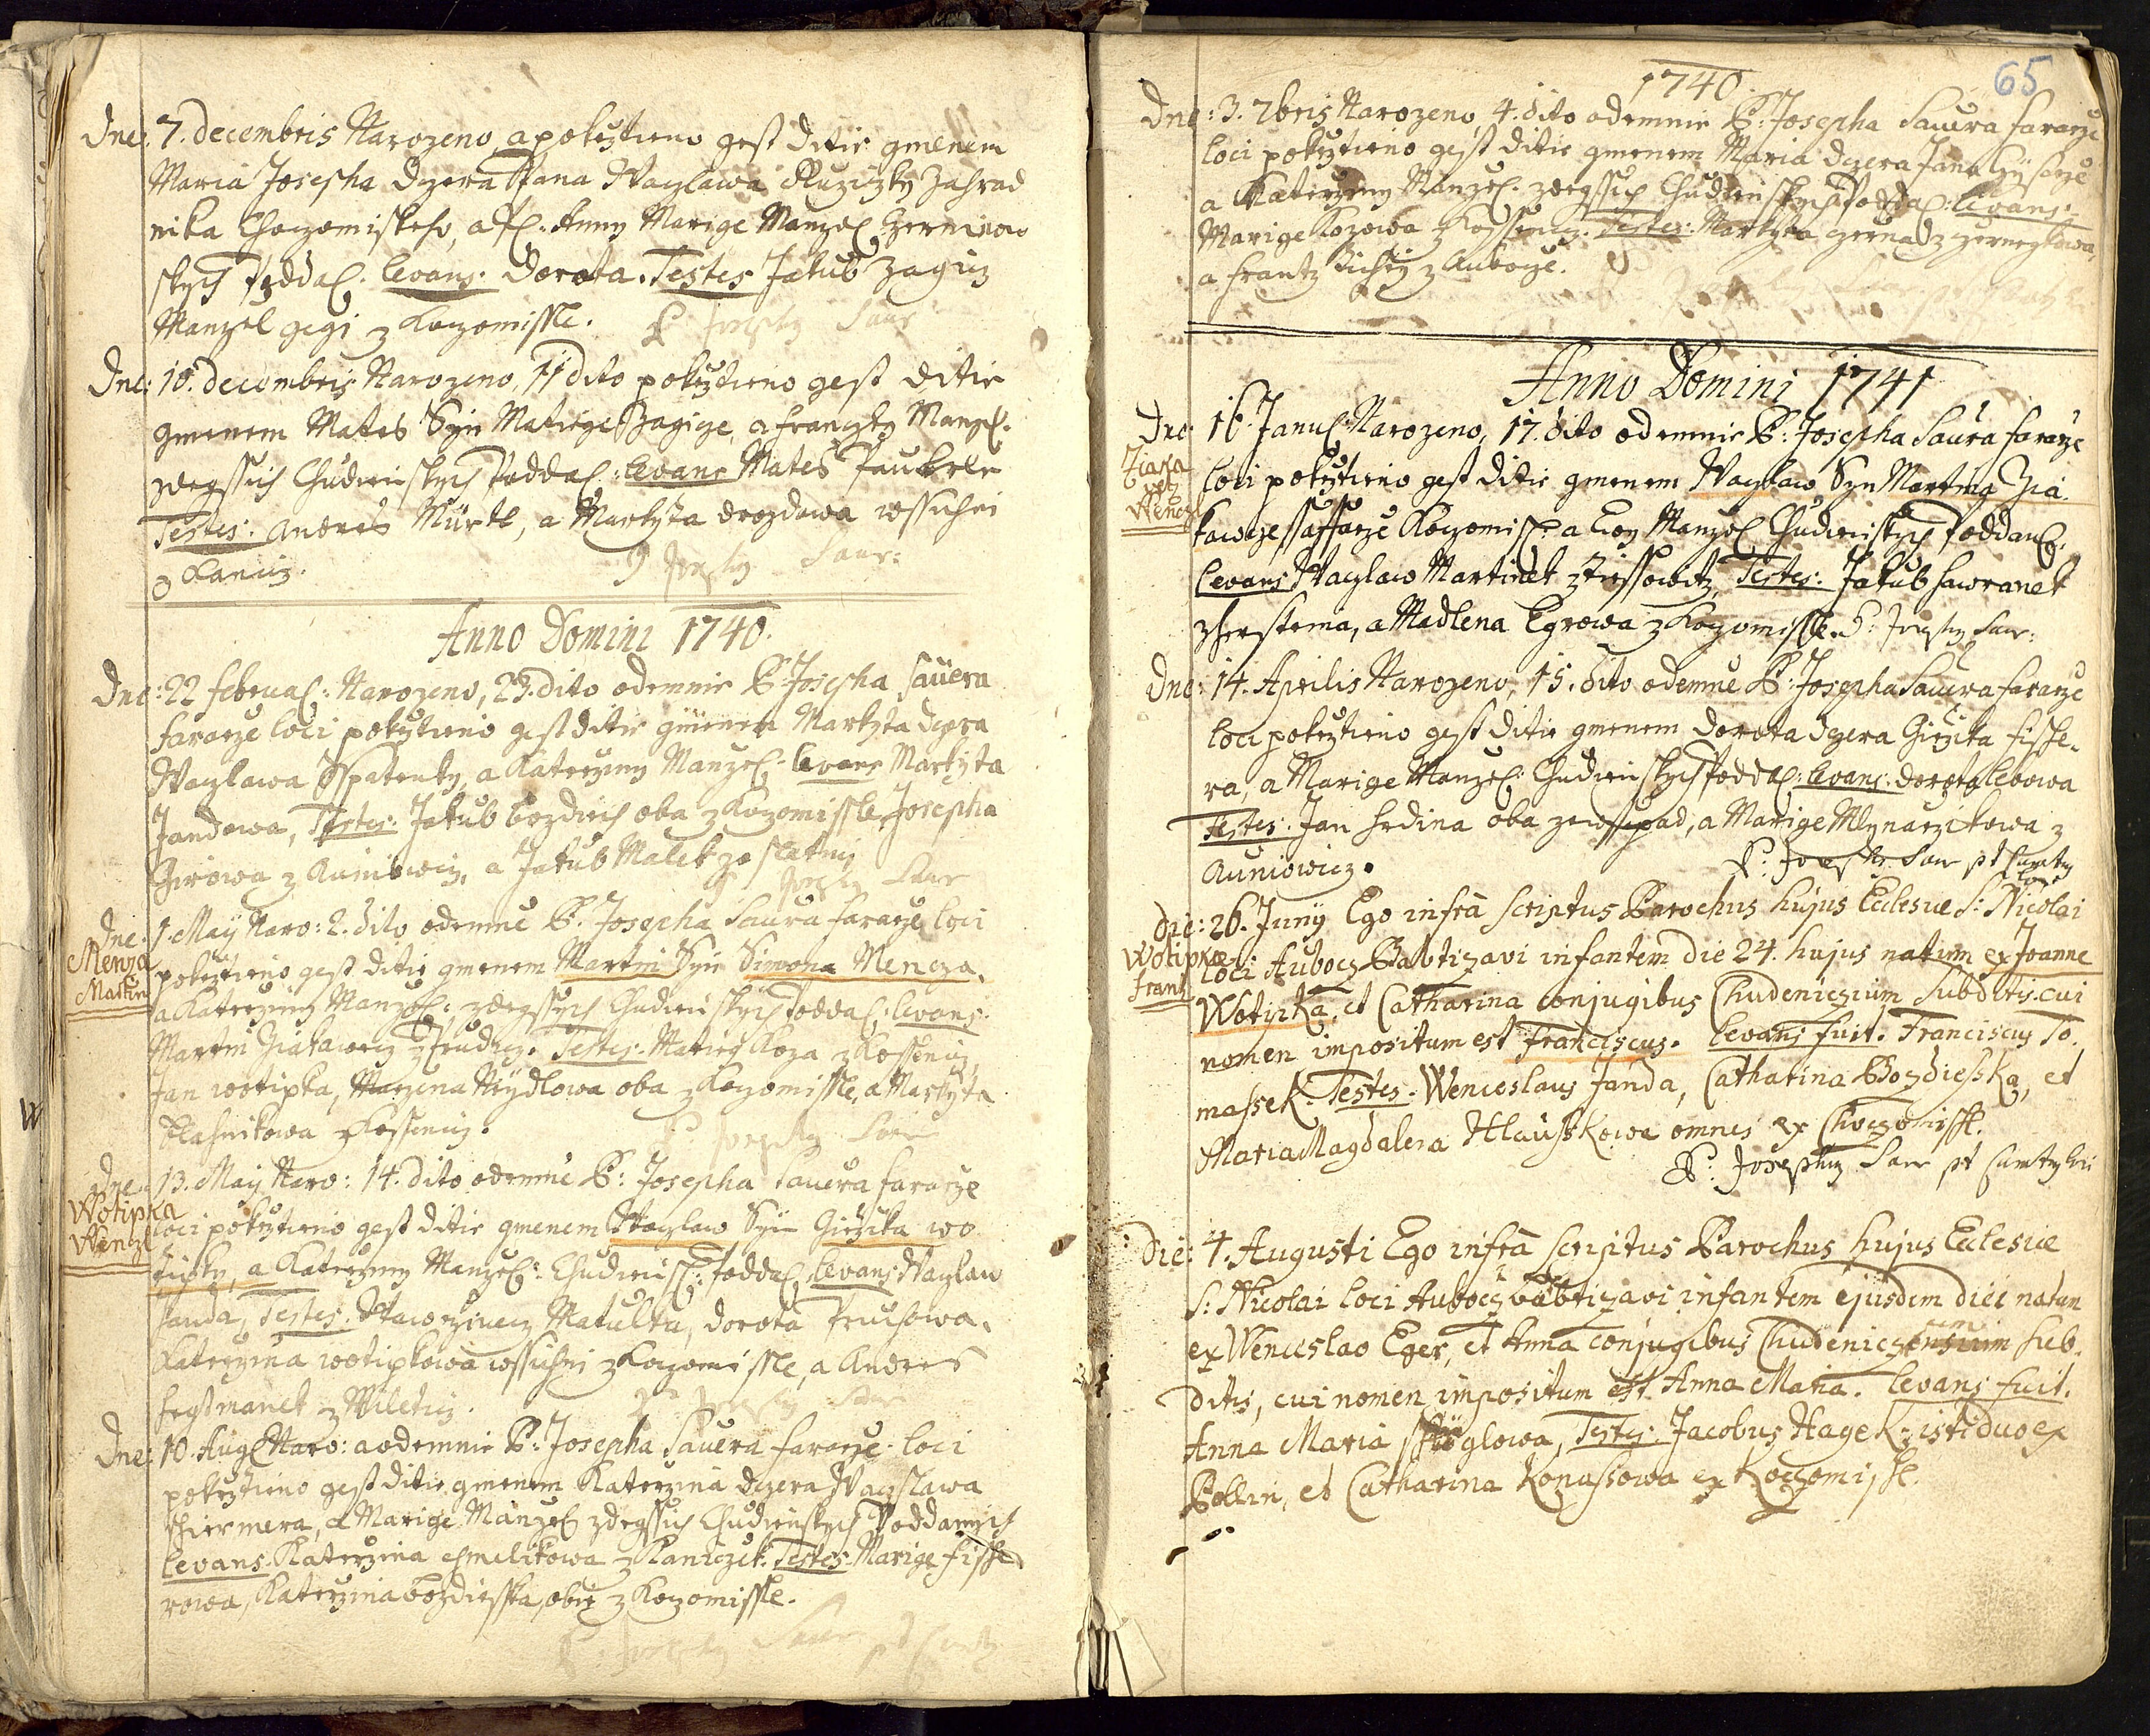 Dne: 7. decembris Narozeno, a pokrztieno gest ditie gmenem
Maria Josepha dczera Pana Waczlawa Ruziczky Zahrad
nika Choczomiskeho, a Anny Marige Manzel Czerninow
skych poddal: Levans. Dorota. Testes Jakub Zagicz
Manzel gegi z Koczomissle. P Josephy Saur
Dne: 10. decembris Narozeno, 11 dito pokrztieno gest ditie
gmenem Mates Syn Matiege Zagicze, a Franczky Manzel.
zdegssich Chudeniskych Poddal: Levans Mates Paukele
Testes: Andres Mürtl, a Markyta drozdowa wssichni
z Kanicz. P Josephy Saur:
Anno Domini 1740.
Dne: 22 Februal: Narozeno, 23. dito odemnie P: Josepha Sauera
Fararze loci pokrztieno gest ditie gmenem Markyta dczera
Waczlawa Sspatenky, a Katerzyny Manzel- Levans Markyta
Jandowa, Testes: Jakub bozdiech oba z Koczomissle, Josepha
Girowa z Auniowicz, a Jakub Malek ze slatiny
P Josephy Saur
Dne: 1. Maÿ Naro: 2. dito odemnie P. Josepha Saura Fararze loci
Menza
Martin
pokrztieno gest ditie gmenem Martin Syn Simona Mencza,
a Katerzyny Manzel: zdegssych Chudeniskych Poddal: Levans:
Martin Giakawecz z Trudicz. Testes- Matieg Koza z Kossenicz
Jan wotipka, Marzena Neydlowa oba z Koczomissle, a Markyta
blahnikowa z Kossenicz.
P: Josephy Saur
Dne: 13. Maÿ Naro: 14. dito odemnie P: Josepha Sauera Fararze
Wotipka
Wenzl
loci pokrztieno gest ditie gmenem Waczlaw Syn Girzika wo
tipky, a Katerzyny Manzel: Chudenisk: Poddal, Levans Waczlaw
Janda, Testes. Wawrzinecz Matulka, Dorota Pruchowa,
Katerzyna wotipkowa wssichni z Koczomissle, a Andres
Hegsmanek z Mileticz. P Josephy Saur
Dne: 10. Aug Naro: a odemnie P: Josepha Sauera Fararze loci
pokrztieno gest ditie gmenem Katerzyna dczera Waczlawa
schiermera, a Marige Manzel zdegssich Chudeniskych Poddannych
Levans Katerzyna chmelikowa z Kaniczek. Testes- Marige Fissle
rowa, Katerzyna bozdiesska, obie z Koczomissle.
P Josephy Saur pt Curaty
65
1740.
Dne: 3. 7bris Narozeno, 4. dito odemnie P: Josepha Sauera Fararze
loci pokrztieno gest ditie gmenem Maria dczera Jana Cysarze
a Katerzyny Manzel. zdegssich Chudeniskych Poddal. Levans:
Marige Kozowa z Kossenicz. Testes: Markyta
a Frantz Bichty z Auborze.
Anno Domini 1741
Dne 16. Janul: Narozeno, 17. dito odemnie P: Josepha Saura Fararze
Wenczl
loci pokrztieno gest ditie gmenem Waczlaw Syn Martina Gia
kawcze ssaffarze Koczomisl: a Ewy Manzel Chudeniskych Poddanl.
Levans Waczlaw Martinek z Tiessowitz, Testes: Jakub hawranek
z herstema, a Madlena Egrowa z Koczomissle. P: Josephy Saur:
Dne: 14. Aprilis Narozeno, 15. dito odemne P: Josepha Sauera Fararze
loci pokrztieno gest ditie gmenem Dorota dczera Girzika Fissle,
ra, a Marige Manzel: Chudeniskych Poddal: Levans: Dorota lebowa
Testes: Jan Hrdina oba ze wssepad, a Marige Mlynarzikowa z
Auniowicz. P: Josephy Saur pt Curatus
loci
die: 26. Junÿ Ego infrà scriptus Parochus hujus Eclesiæ S: Nicolai
Wotipka
Frantz
Loci Aubocz Babtizavi infantem die 24. hujus natum ex Joanne
Wotipka, et Catharina conjugibus Chudeniczium Subditis. cui
nomen impositum est Franciscus. Levans fuit. Franciscus To.
massek. Testes. Wenceslaus Janda, Catharina Bozdiesska, et
Maria Magdalena Hlausskowa omnes ex Choczomissl.
P: Josephus Saur pt Curaty loci
die: 4. Augusti Ego infrà scriptus Parochus hujus Eclesiæ
S: Nicolai loci Aubocz babtizavi infantem ejusdem diei natam
ex Wenceslao Eger, et Anna conjugibus Chudeniczensium Sub.
ditis, cui nomen impositum est Anna Maria. Levans fuit.
Anna Maria glowa, Testes: Jacobus Hagek isti duo ex
Pollin, et Catharina Konassowa ex Koczomissl.